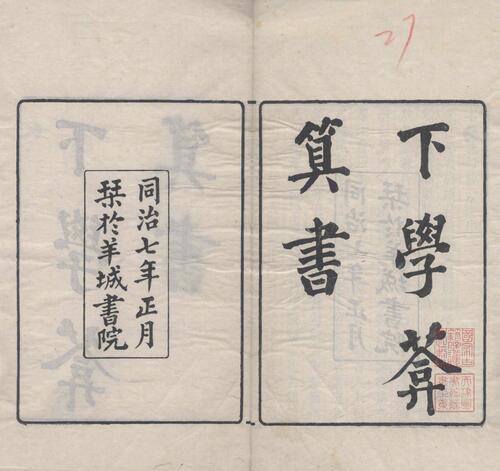 27
下學葊
算書
同治七年正月
栞於羊城書院